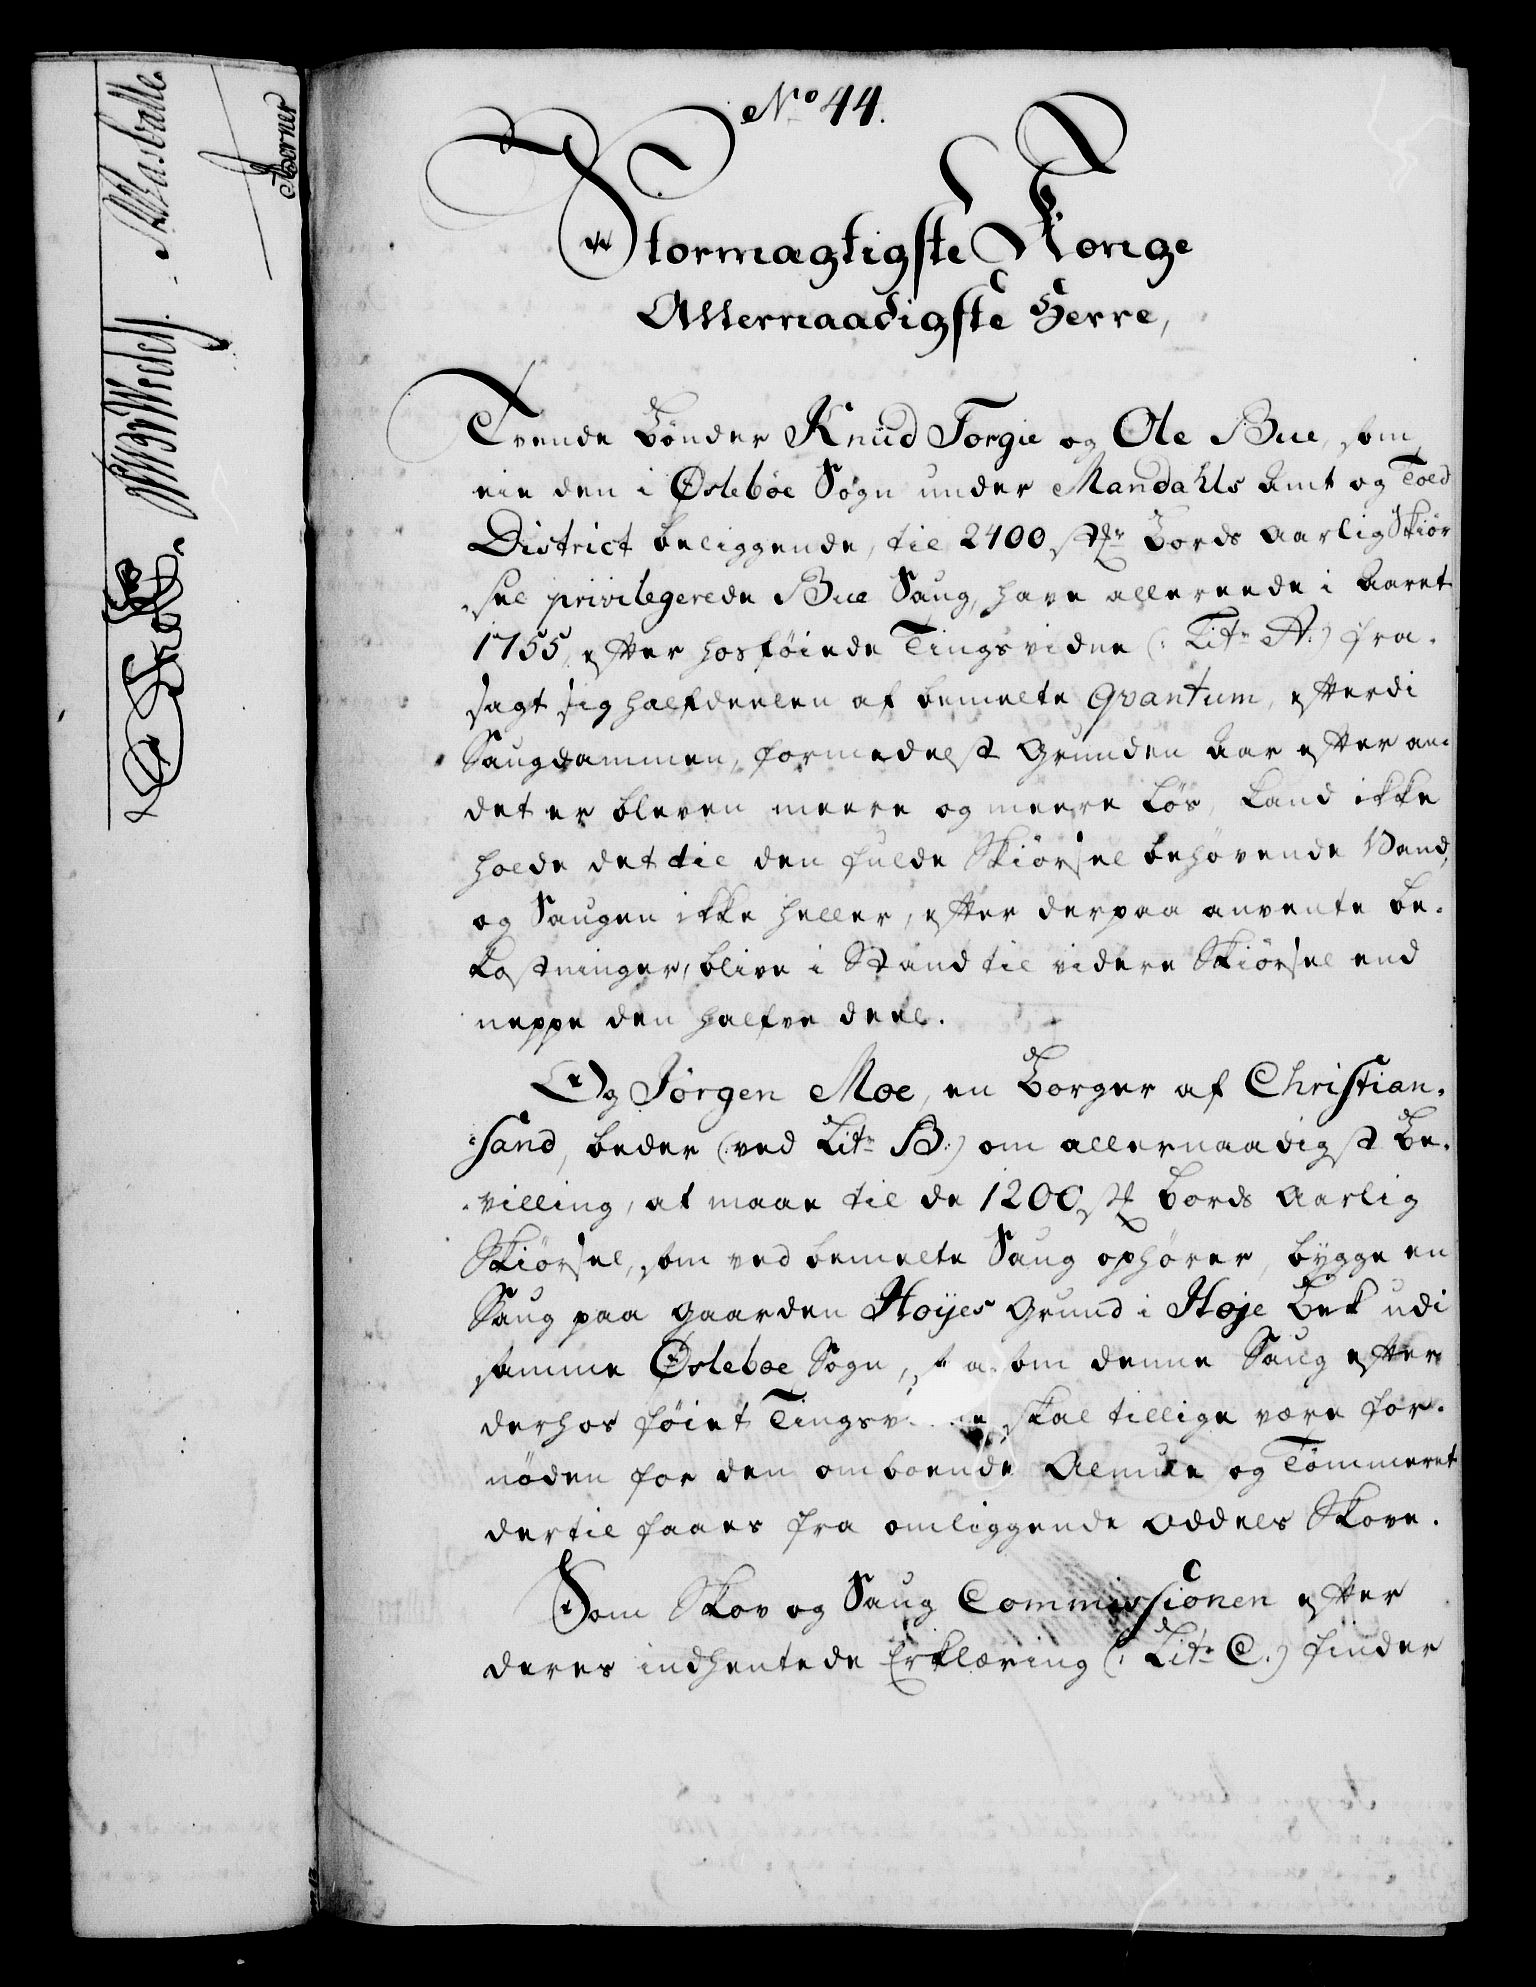 No 44.
Stormægtigste Konge
Allernaadigste Herre,
Tvende bönder Knud Torgie og Ole Bue, som
eie den i Öslebøe Sögn under Mandahls Amt og Told
District beliggende, til 2400 stkr bords aarlig Skiör
sel privilegerede Bue Saug, have allereede i Aaret
1755, efter hosföiede Tingsvidne (: Litr A:) fra-
sagt sig halfdeelen af bemelte qvantum, efterdi
Saugdammen, formedelst Grunden Aar efter an-
det er bleven meere og meere lös, kand ikke
holde det til den fulde Skiörsel behövende Vand,
og Saugen ikke heller, efter derpaa anvente be-
kostninger, blive i Stand til videre Skiörsel end
neppe den halfve deel.
Og Jörgen Moe, en borger af Christian-
sand, beder (: ved Litr B:) om allernaadigst be-
villing, at maae til de 1200 stk bords aarlig
Skiörsel, som ved bemelte Saug ophörer, bygge en
Saug paa gaarden Höyes Grund i Höje bek udi
samme Öslebøe Sogn, saasom denne Saug efter
derhos föiet Tingsvidne skal tillige være for-
nöden for den omboende Almue og Tömmeret
dertil faaes fra omliggende Oddels Skove.
Som Skov og Saug Commissionen efter
deres indhentede Erklæring (: Litr C.) finder